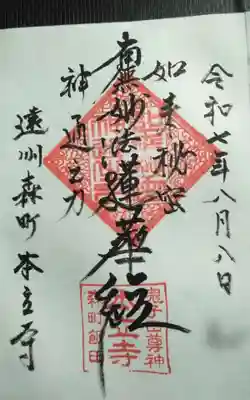 令和七年八月八日
如来秘密
南無妙法蓮華経
神通之力
遠州森町 本立寺
森町飯田
本立寺